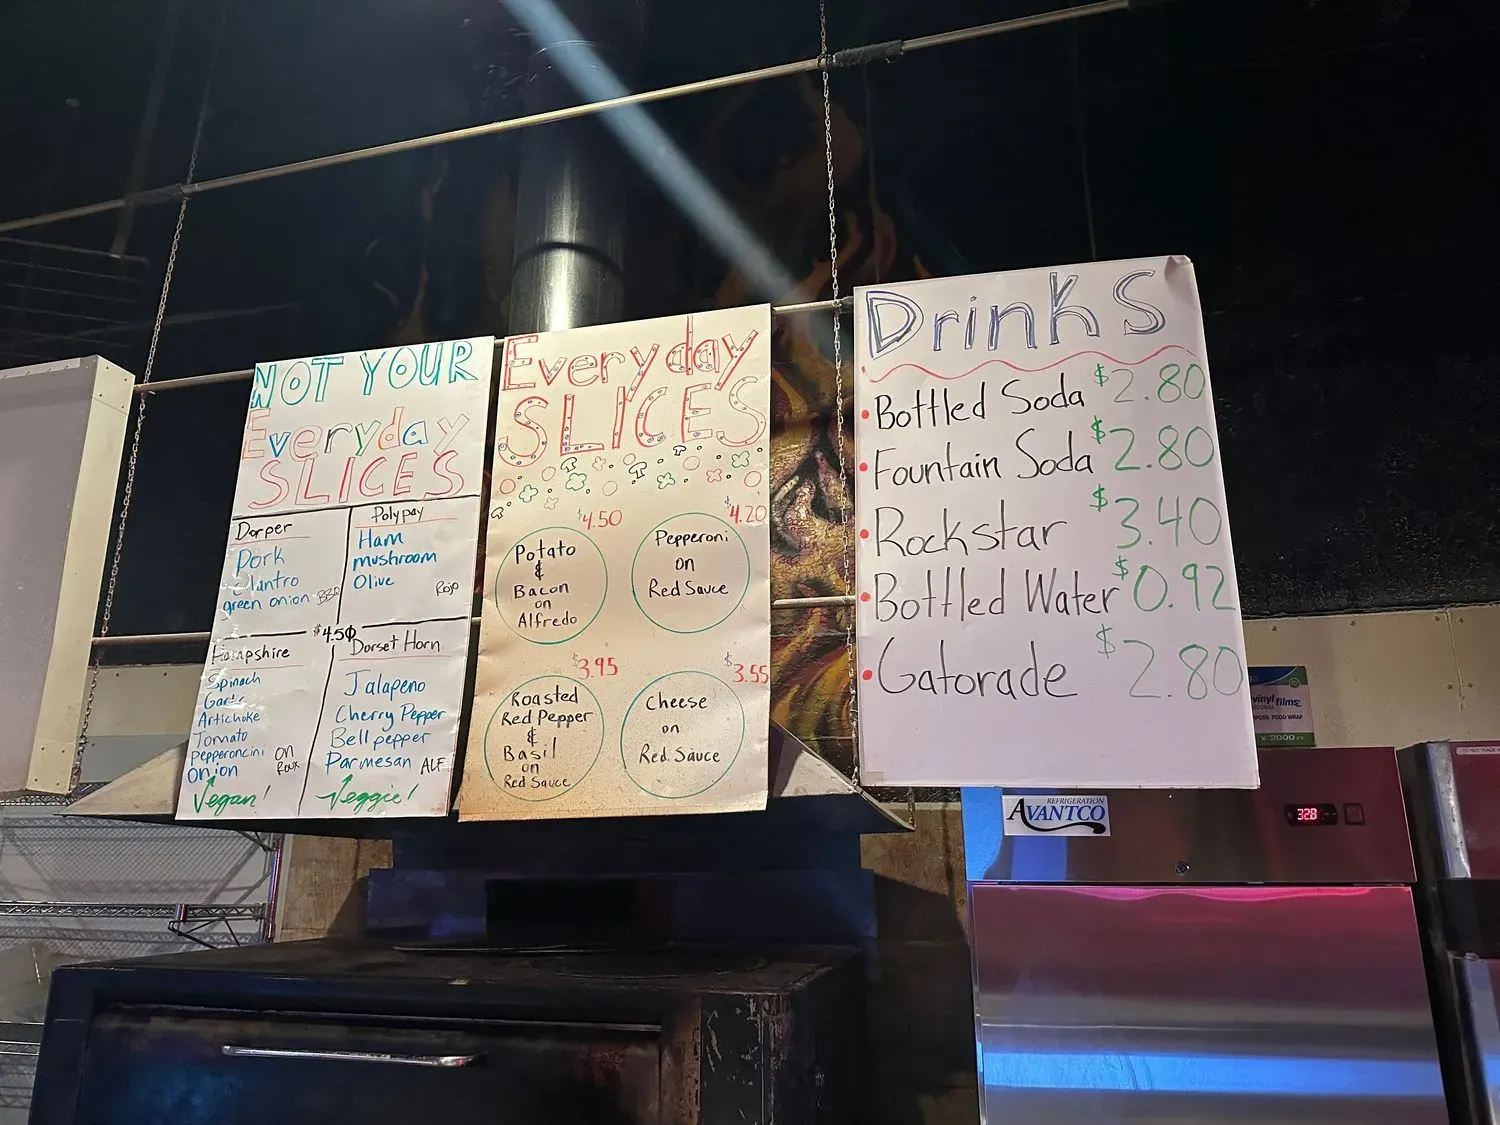 NOT YOUR
Everyday
SLICES
Dorper
Pork
Cilantro
green onion BBQ
Polypay
Ham
mushroom
Olive
Rojo
$4.50
Hampshire
Spinach
Garlic
Artichoke
Tomato
Pepperoncini
onion
on
Roux
Vegan!
Dorset Horn
Jalapeno
Cherry Pepper
Bell pepper
Parmesan ALF
Veggie!
Everyday
SLICES
$4.50
Potato
&
Bacon
on
Alfredo
$4.20
Pepperoni
on
Red Sauce
$3.95
Roasted
Red Pepper
&
Basil
on
Red Sauce
$3.55
Cheese
on
Red Sauce
Drinks
Bottled Soda $2.80
Fountain Soda $2.80
Rockstar $3.40
Bottled Water $0.92
Gatorade $2.80
vinyl films
FOOD WRAP
x 2000 FT
REFRIGERATION
AVANTCO
328